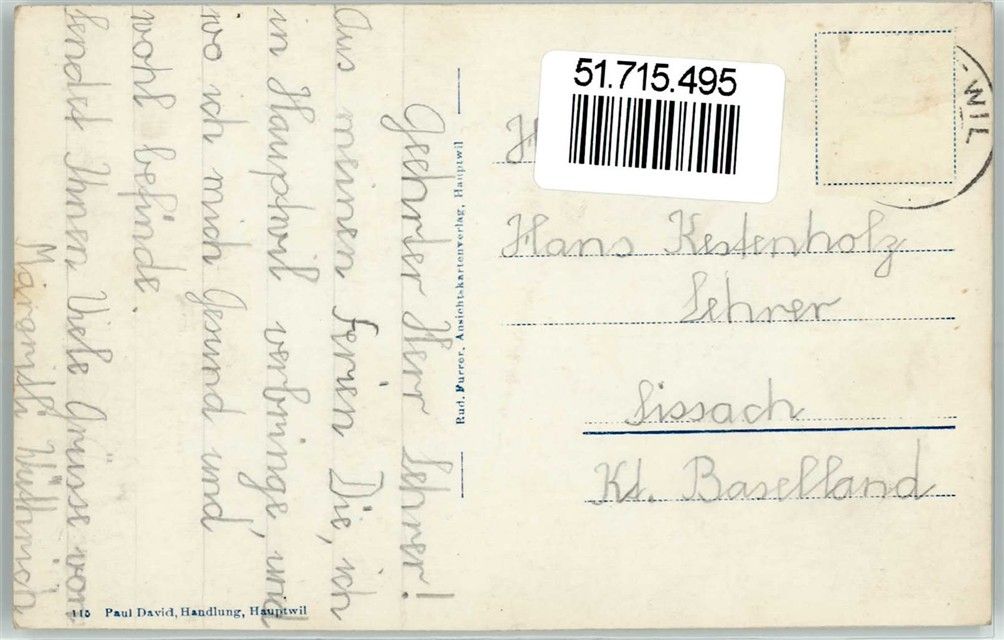 Geehrter Herr Lehrer!
Aus meinen Ferien Die, ich
in Hauptwil verbringe, und
wo ich mich Gesund und
wohl befinde.
Sendet Ihnen Viele Grüsse von
Margrith Wüthrich
115 Paul David, Handlung, Hauptwil
Rud. Furrer, Ansichtskartenverlag, Hauptwil
51.715.495
WIL
Hans Kestenholz
Lehrer
Sissach
Kt. Baselland